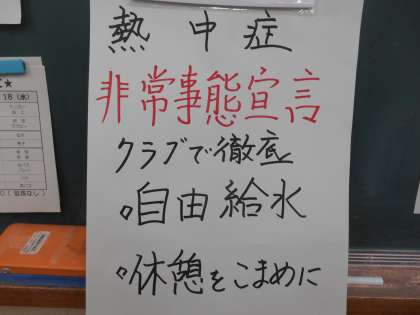 熱中症
非常事態宣言
クラブで徹底
◦自由給水
◦休憩をこまめに
18(水)